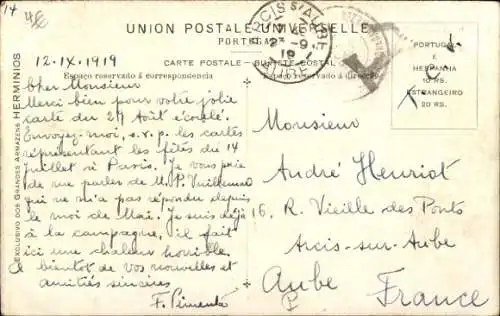 14
4€
UNION POSTALE UNIVERSELLE
PORTUGAL
CARTE POSTALE - BILHETE POSTAL
Espaço reservado á correspondencia
Espaço reservado á direcção
ARCIS S/AUBE
AUBE
PORTUGAL
HESPANHA
10 RS.
ESTRANGEIRO
20 RS.
EXCLUSIVO DOS GRANDES ARMAZENS HERMINIOS
12-IX-1919
Cher Monsieur
Merci bien pour votre jolie
carte du 27 Août écoulé.
Envoyez-moi, s.v.p. les cartes
représentant les fêtes du 14
juillet à Paris. Je vous prie
de me parler de M. P. Vuillemard
qui ne m'a pas répondu depuis
le moi de Mai. Je suis déjà
à la campagne, il fait
ici une chaleur horrible.
A bientôt de vos nouvelles et
amitiés sincères
F. Pimenta
Monsieur
André Henriot
16, R. Vieille des Ponts
Arcis-sur-Aube
Aube
France